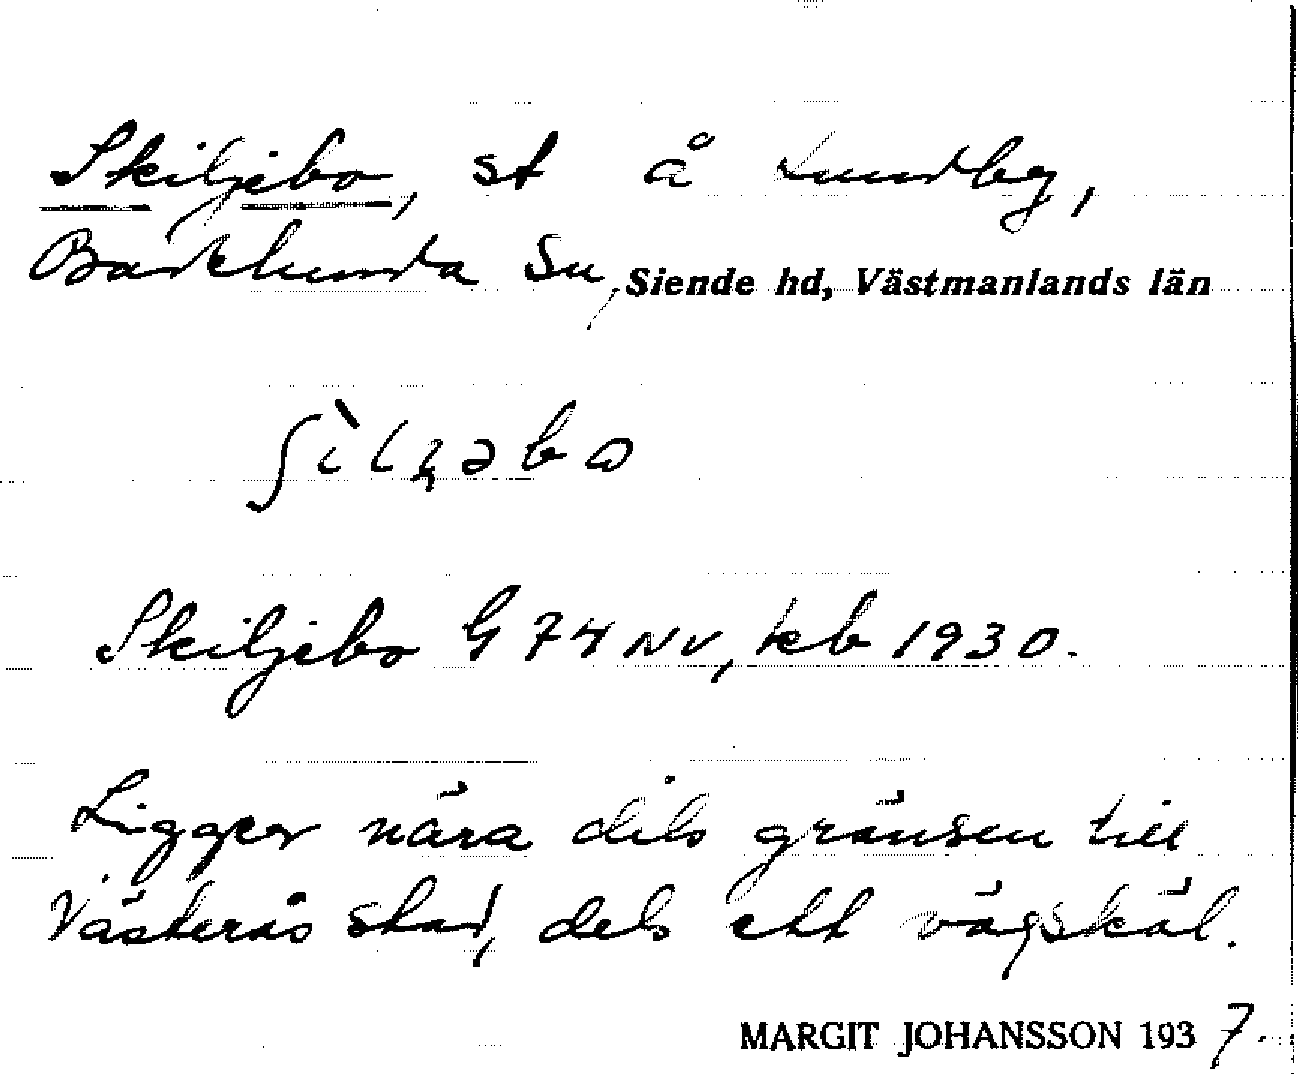 Skiljebo, st å Lundby,
Badelunda Sn, Siende hd, Västmanlands län
Skiljebo G 74 NV, kb 1930.
Ligger nära dels gränsen till
Västerås stad, dels ett vägskäl.
MARGIT JOHANSSON 1937.